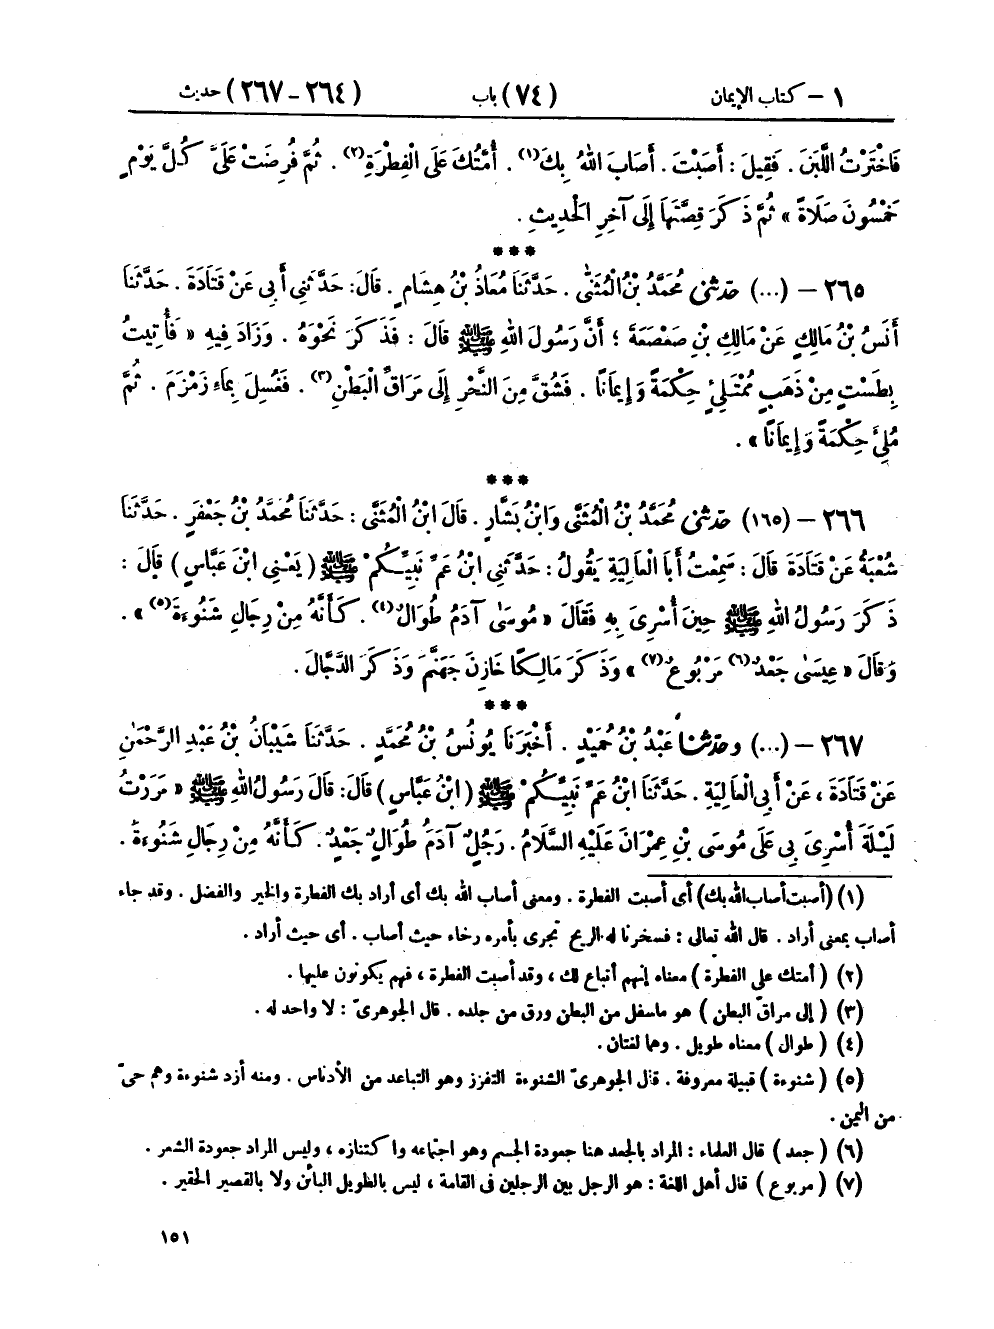 ١ – كتاب الإيمان (٧٤) باب (٢٦٤ – ٢٦٧) حديث
فَاخْتَرْتُ اللَّبَنَ . فَقِيلَ : أَصَبْتَ . أَصَابَ اللهُ بِكَ(١) . أُمَّتُكَ عَلَى الْفِطْرَةِ(٢) . ثُمَّ فُرِضَتْ عَلَىَّ كُلَّ يَوْمٍ
خَمْسُونَ صَلَاةً » ثُمَّ ذَكَرَ قِصَّتَهَا إِلَى آخِرِ الْحَدِيثِ .
***
٢٦٥ – (...) حَدَّثَنِي مُحَمَّدُ بْنُ الْمُثَنَّى . حَدَّثَنَا مُعَاذُ بْنُ هِشَامٍ . قَالَ : حَدَّثَنِي أَبِى عَنْ قَتَادَةَ . حَدَّثَنَا
أَنَسُ بْنُ مَالِكٍ عَنْ مَالِكِ بْنِ صَعْصَعَةَ ؛ أَنَّ رَسُولَ اللهِ ﷺ قَالَ : فَذَكَرَ نَحْوَهُ . وَزَادَ فِيهِ « فَأُتِيتُ
بِطَسْتٍ مِنْ ذَهَبٍ مُمْتَلِئٍ حِكْمَةً وَإِيمَانًا . فَشُقَّ مِنَ النَّحْرِ إِلَى مَرَاقِّ الْبَطْنِ(٣) . فَغُسِلَ بِمَاءِ زَمْزَمَ . ثُمَّ
مُلِئَ حِكْمَةً وَإِيمَانًا » .
***
٢٦٦ – (١٦٥) حَدَّثَنِي مُحَمَّدُ بْنُ الْمُثَنَّى وَابْنُ بَشَّارٍ . قَالَ ابْنُ الْمُثَنَّى : حَدَّثَنَا مُحَمَّدُ بْنُ جَعْفَرٍ . حَدَّثَنَا
شُعْبَةُ عَنْ قَتَادَةَ قَالَ : سَمِعْتُ أَبَا الْعَالِيَةِ يَقُولُ : حَدَّثَنِى ابْنُ عَمِّ نَبِيِّكُمْ ﷺ ( يَعْنِى ابْنَ عَبَّاسٍ ) قَالَ :
ذَكَرَ رَسُولُ اللهِ ﷺ حِينَ أُسْرِىَ بِهِ فَقَالَ « مُوسَى آدَمُ طُوَالٌ(٤) . كَأَنَّهُ مِنْ رِجَالِ شَنُوءَةَ(٥) » .
وَقَالَ « عِيسَى جَعْدٌ(٦) مَرْبُوعٌ(٧) » وَذَكَرَ مَالِكًا خَازِنَ جَهَنَّمَ وَذَكَرَ الدَّجَّالَ .
***
٢٦٧ – (...) وحَدَّثَنَا عَبْدُ بْنُ حُمَيْدٍ . أَخْبَرَنَا يُونُسُ بْنُ مُحَمَّدٍ . حَدَّثَنَا شَيْبَانُ بْنُ عَبْدِ الرَّحْمَنِ
عَنْ قَتَادَةَ ، عَنْ أَبِى الْعَالِيَةِ . حَدَّثَنَا ابْنُ عَمِّ نَبِيِّكُمْ ﷺ ( ابْنُ عَبَّاسٍ ) قَالَ : قَالَ رَسُولُ اللهِ ﷺ « مَرَرْتُ
لَيْلَةَ أُسْرِىَ بِى عَلَى مُوسَى بْنِ عِمْرَانَ عَلَيْهِ السَّلَامُ . رَجُلٌ آدَمُ طُوَالٌ جَعْدٌ . كَأَنَّهُ مِنْ رِجَالِ شَنُوءَةَ .
(١) (أصبت أصاب الله بك) أى أصبت الفطرة . ومعنى أصاب الله بك أى أراد بك الفطرة والخير والفضل . وقد جاء
أصاب بمعنى أراد . قال الله تعالى : فسخرنا له الريح تجرى بأمره رخاء حيث أصاب . أى حيث أراد .
(٢) ( أمتك على الفطرة ) معناه إنهم أتباع لك ، وقد أصبت الفطرة ، فهم يكونون عليها .
(٣) ( إلى مراقّ البطن ) هو ماسفل من البطن ورق من جلده . قال الجوهرىّ : لا واحد له .
(٤) ( طوال ) معناه طويل . وهما لغتان .
(٥) ( شنوءة ) قبيلة معروفة . قال الجوهرىّ الشنوءة التقزز وهو التباعد من الأدناس . ومنه أزد شنوءة وهم حىّ
من اليمن .
(٦) ( جعد ) قال العلماء : المراد بالجعد هنا جعودة الجسم وهو اجتماعه واكتنازه ، وليس المراد جعودة الشعر .
(٧) ( مربوع ) قال أهل اللغة : هو الرجل بين الرجلين فى القامة ، ليس بالطويل البائن ولا بالقصير الحقير .
١٥١